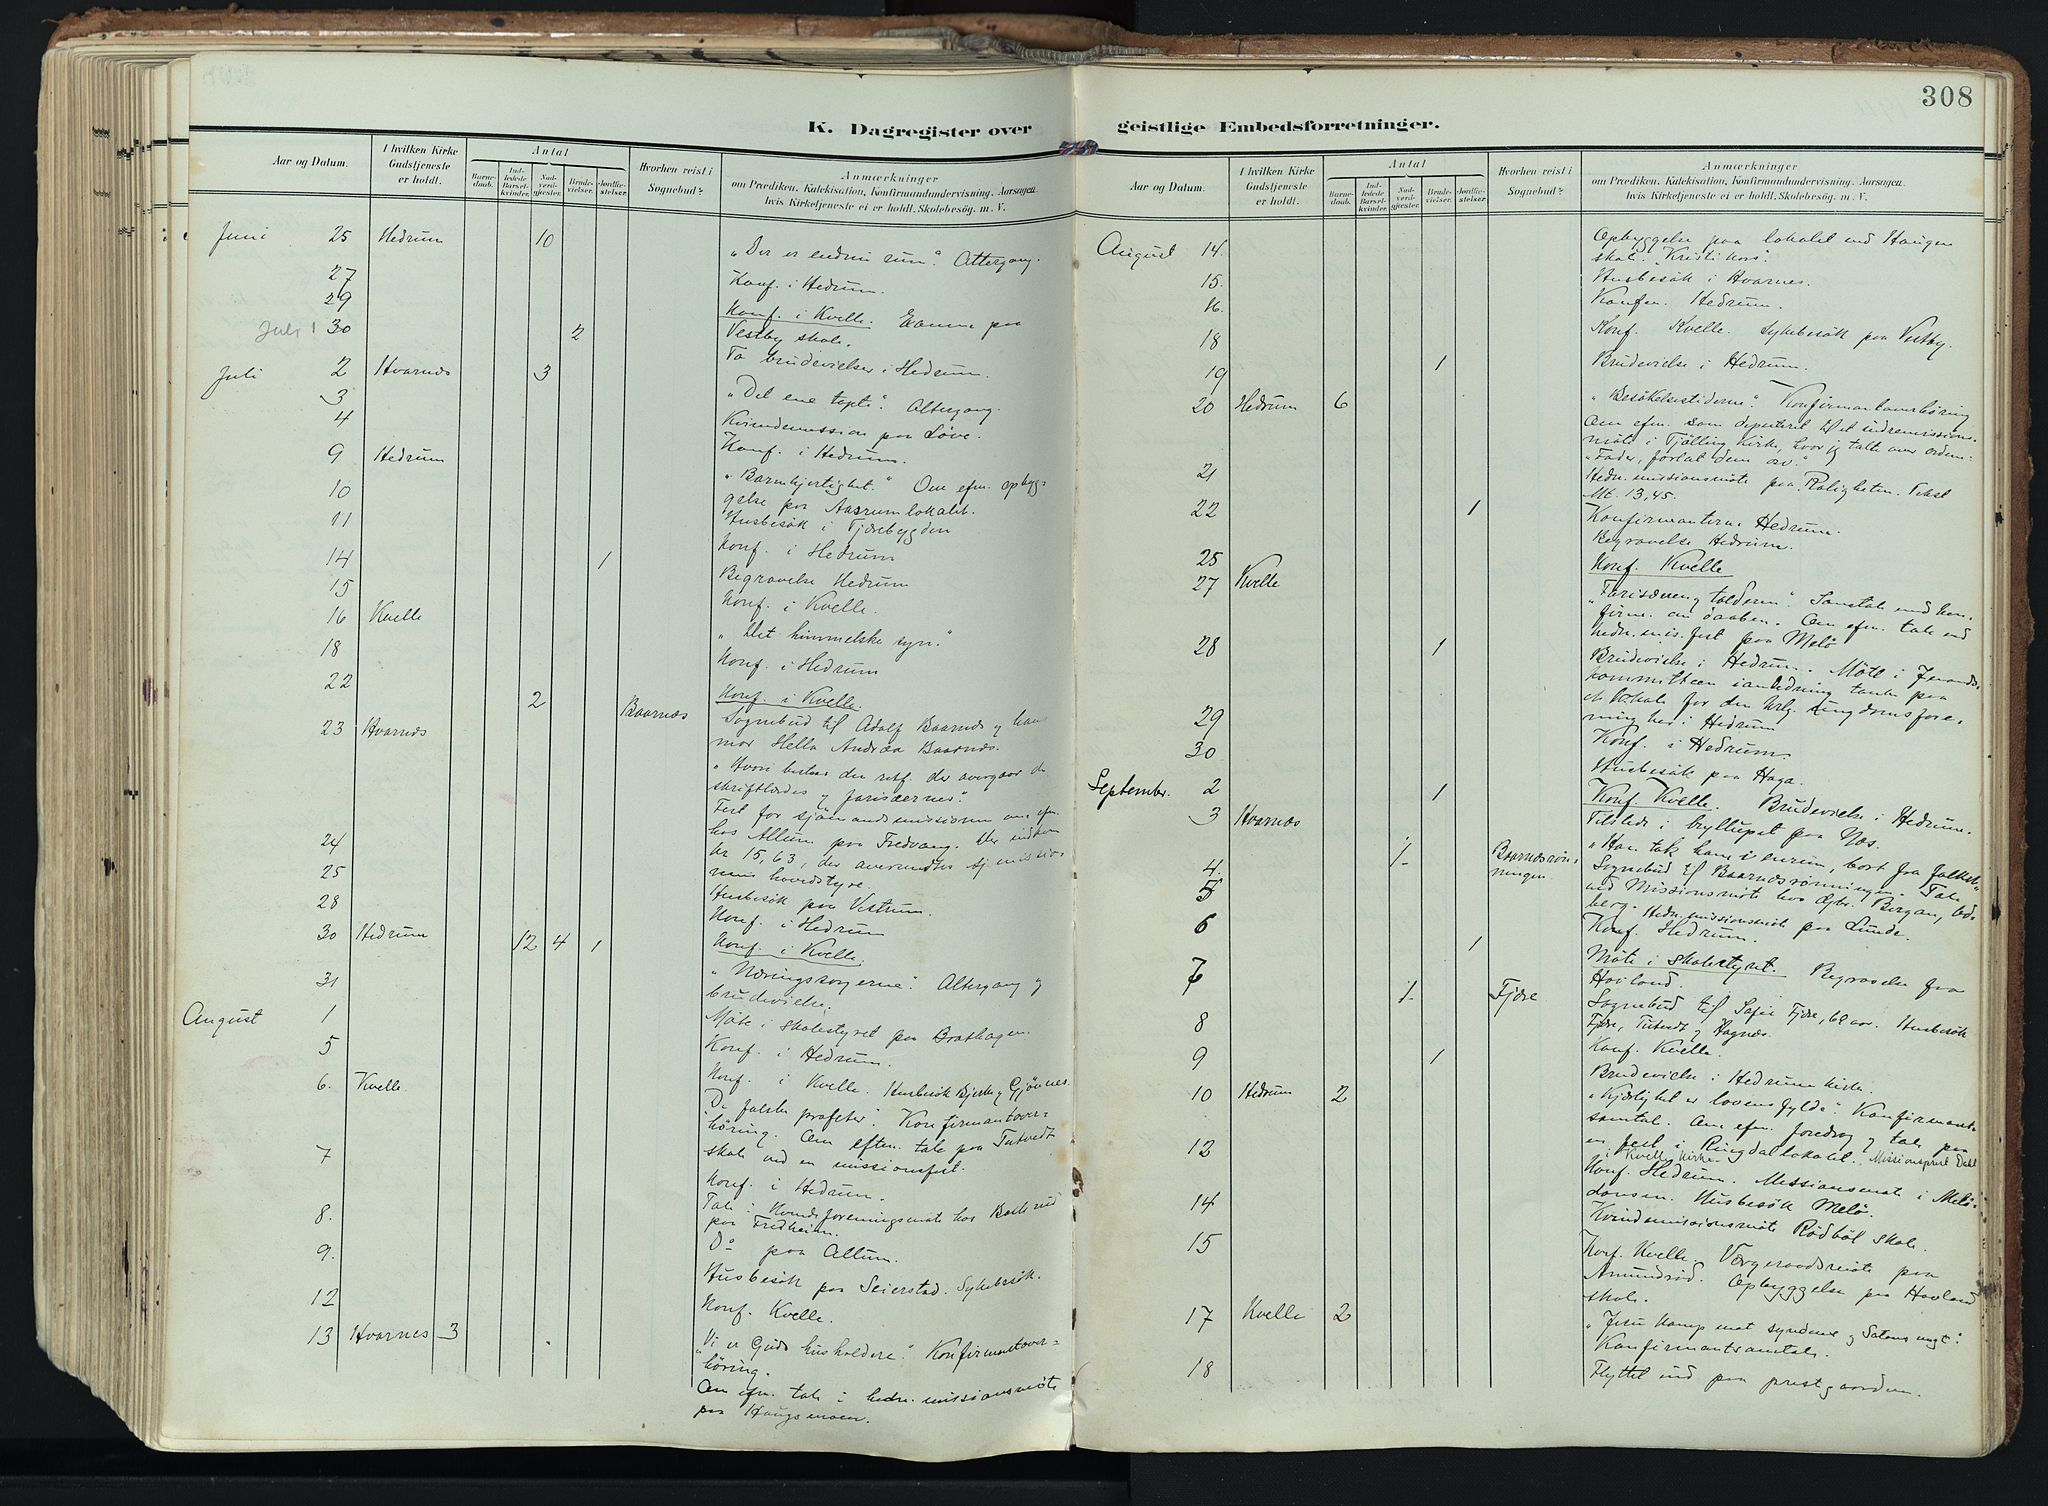 308
K. Dagregister over
geistlige Embedsforretninger.
Aar og Datum.
I hvilken Kirke
Gudstjeneste
er holdt.
Antal
Barne-
daab.
Ind-
ledede
Barsel-
kvinder.
Nad-
verd-
gjæster.
Brude-
vielser.
Jordfæ-
stelser.
Hvorhen reist i
Sognebud?
Anmærkninger
om Prædiken, Katekisation, Konfirmandundervisning, Aarsagen,
hvis Kirketjeneste ei er holdt, Skolebesøg, m. V.
Juni 25 Hedrum 10
"Der er endnu rum". Altergang.
27 Konf. i Hedrum.
29 Konf. i Kvelle. Examen paa
Vestby skole.
Juli 1 30 2
To brudevielser i Hedrum.
Juli 2 Hvarnes 3
"Det ene tapte". Altergang.
3 Kvindemission paa Løve.
4 Konf. i Hedrum.
9 Hedrum
"Barmhjertighet." Om efm. opbyg-
gelse paa Aasrum lokalet.
10 Husbesøk i Tjærebygden
11 Konf. i Hedrum
14 1 Begravelse Hedrum
15 Konf. i Kvelle.
16 Kvelle "Det himmelske syn."
18 Konf. i Hedrum
22 Konf. i Kvelle.
2 Baarnæs Sognebud til Adolf Baarnæs og hans
mor Hella Andrea Baarnæs.
23 Hvarnes
"Hvori bestaar den retf. der overgaar de
skriftlærdes og farisæernes".
Fest for sjømandsmissionen om efm.
hos Allum paa Fredvang. Der indkom
kr 15,63, der oversendtes sj. mission-
nens hovedstyre.
24 Husbesøk paa Vestrum.
25 Konf. i Hedrum
28 Konf. i Kvelle.
30 Hedrum 12 4 1
"Næringssorgerne". Altergang og
brudevielse.
31 Møte i skolestyret paa Brathagen.
August 1 Konf. i Hedrum.
5 Konf. i Kvelle. Husbesøk Bjerke og Gjønnes.
6. Kvelle.
"De falske profeter". Konfirmantover-
høring. Om eftm. tale paa Tutvedt
skole ved en missionsfest.
7 Konf. i Hedrum.
8. Tale i Kvindeforeningsmøte hos
paa Fredheim.
9. Do paa Allum.
Husbesøk paa Seierstad. Sykebesøk.
12 Konf. Kvelle.
13 Hvarnes 3
"Vi er Guds husholdere". Konfirmantover-
høring.
Om efm. tale i hedn. missionsmøte
paa Haugsmoen.
Aar og Datum.
I hvilken Kirke
Gudstjeneste
er holdt.
Antal
Barne-
daab.
Ind-
ledede
Barsel-
kvinder.
Nad-
verd-
gjæster.
Brude-
vielser.
Jordfæ-
stelser.
Hvorhen reist i
Sognebud?
Anmærkninger
om Prædiken, Katekisation, Konfirmandundervisning, Aarsagen,
hvis Kirketjeneste ei er holdt, Skolebesøg, m. V.
August 14. Opbyggelse paa lokalet ved Haugen
skole. "Kristi kors".
15. Husbesøk i Hvarnes.
16. Konfen. Hedrum.
18 Konf. Kvelle. Sykebesøk paa Vestby.
19 1 Brudevielse i Hedrum.
20 Hedrum 6
"Besøkelsestiderne". Konfirmantoverhøring
Om efm. som deputeret til et indremissions-
møte i Tjølling Kirke, hvor jeg talte over ordene:
"Fader, forlat dem osv."
21 Hedn. missionsmøte paa Roligheten. Tekst
Mt. 13,45.
22 1 Konfirmanterne Hedrum.
Begravelse Hedrum.
25 Konf. Kvelle
27 Kvelle
"Farisæeren og tolderen". Samtale med kon-
firm. om daaben. Om efm. tale ved
hedn. mis. fest paa Melø
28 1 Brudevielse i Hedrum. Møte i
kommitteen i anledning tanke paa
et lokale for den krlg. ungdomsfore-
ning her i Hedrum
29 Konf. i Hedrum
30 Husbesøk paa Haga.
September. 2 1 Konf. Kvelle. Brudevielse i Hedrum.
Tilstede i bryllupet paa Næs.
3 Hvarnæs
"Han tok ham i enrum, bort fra folket"
4. 1/. Baarnæsrøn-
ningen
Sognebud til Baarnæsrønningen. Tale
ved Missionsmøte hos Bergan, Odd-
berg.
5 Hedn. missionsmøte paa Lunde.
6 Konf. Hedrum.
1 Møte i skolestyret. Begravelse fra
Hovland.
7 1/. Fjære Sognebud til Sofie Fjære, 62 aar. Husbesøk
Fjære, Tutvedt og Hagnæs.
8 Konf. Kvelle.
9 1 Brudevielse i Hedrum kirke.
10 Hedrum 2
"Kjærlighet er lovens fylde". Konfirmant-
samtal. Om efm. foredrag og tale paa
en fest i Ringdal lokalet. Missionsprest Dahl
i Kvelle Kirke
12 Konf. Hedrum. Missionsmøte i Melø-
Husbesøk Melø.
14 Kvindemissionsmøte Rødbøl skole.
15 Konf. Kvelle. Vergeraadsmøte paa
Amundrød. Opbyggelse paa Hovland
skole.
17 Kvelle 2
"Jesu kamp mot syndens og Satans magt".
Konfirmantsamtale.
18 Flyttet ind paa prestgaarden.